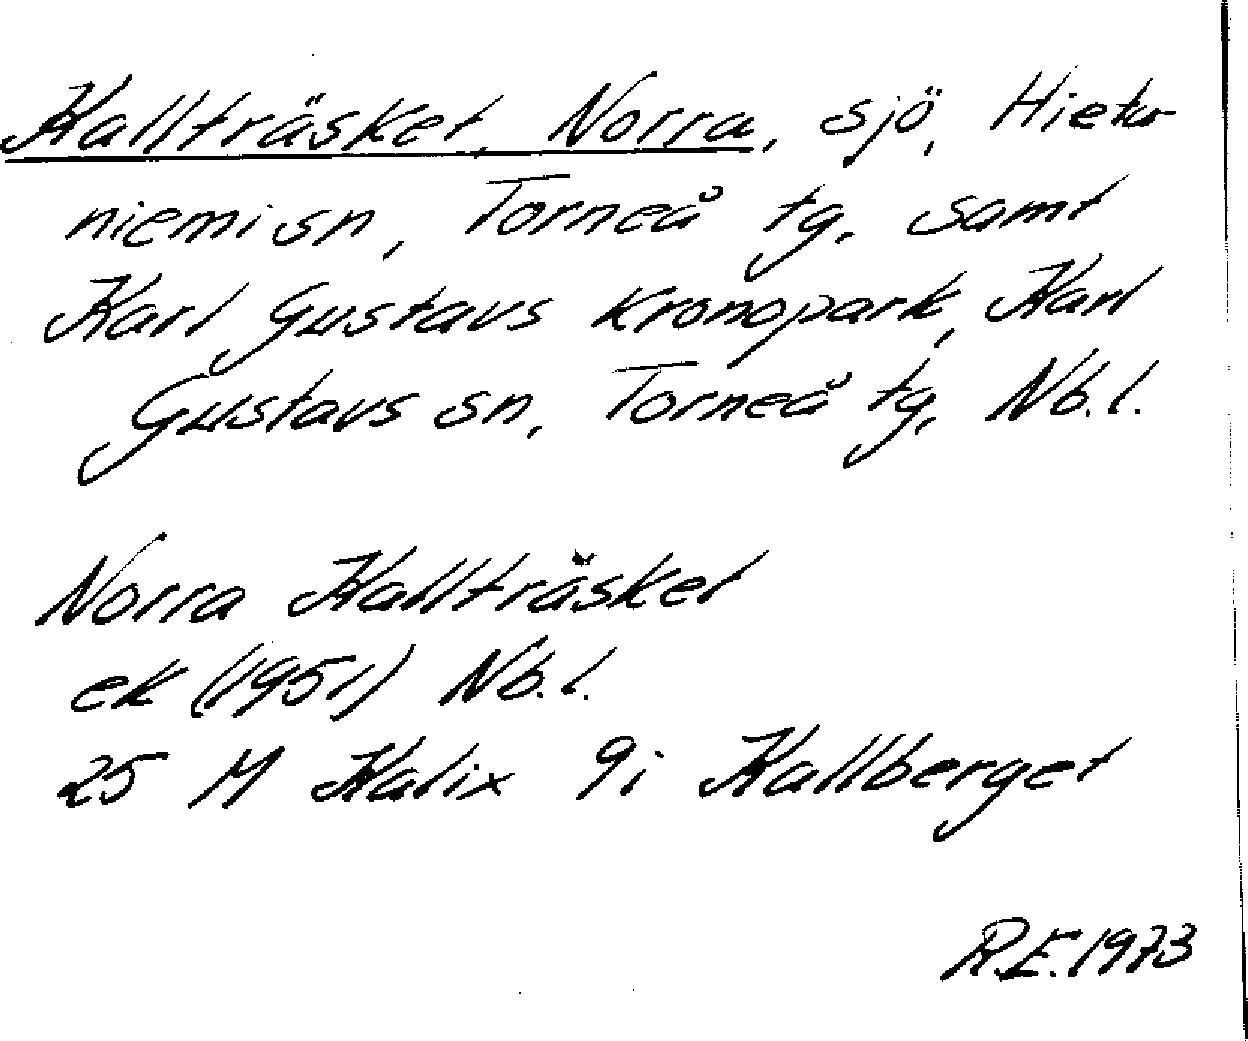 Kallträsket, Norra, sjö, Hieta-
niemi sn, Torneå tg, samt
Karl Gustavs kronopark, Karl
Gustavs sn, Torneå tg, Nb.l.
Norra Kallträsket
ek (1951) Nb.l.
25 M Kalix 9i Kallberget
R.E.1973